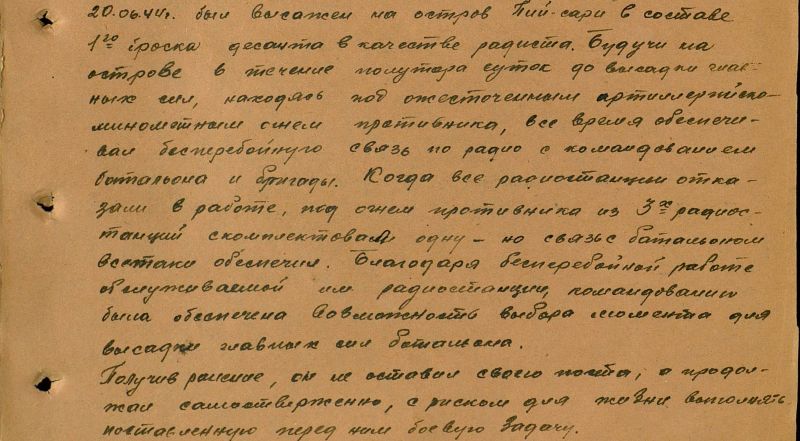 20.06.44г. был высажен на остров Пий-сари в составе
1го броска десанта в качестве радиста. Будучи на
острове в течение полутора суток до высадки глав-
ных сил, находясь под ожесточенным артиллерийско-
минометным огнем противника, все время обеспечи-
вал бесперебойную связь по радио с командованием
батальона и бригады. Когда все радиостанции отка-
зали в работе, под огнем противника из 3х радиос-
танций скомплектовал одну – но связь с батальоном
всетаки обеспечил. Благодаря бесперебойной работе
обслуживаемой им радиостанции, командованию
была обеспечена возможность выбора момента для
высадки главных сил батальона.
Получив ранение, он не оставил своего поста, а продол-
жал самоотверженно, с риском для жизни выполнять
поставленную перед ним боевую задачу.